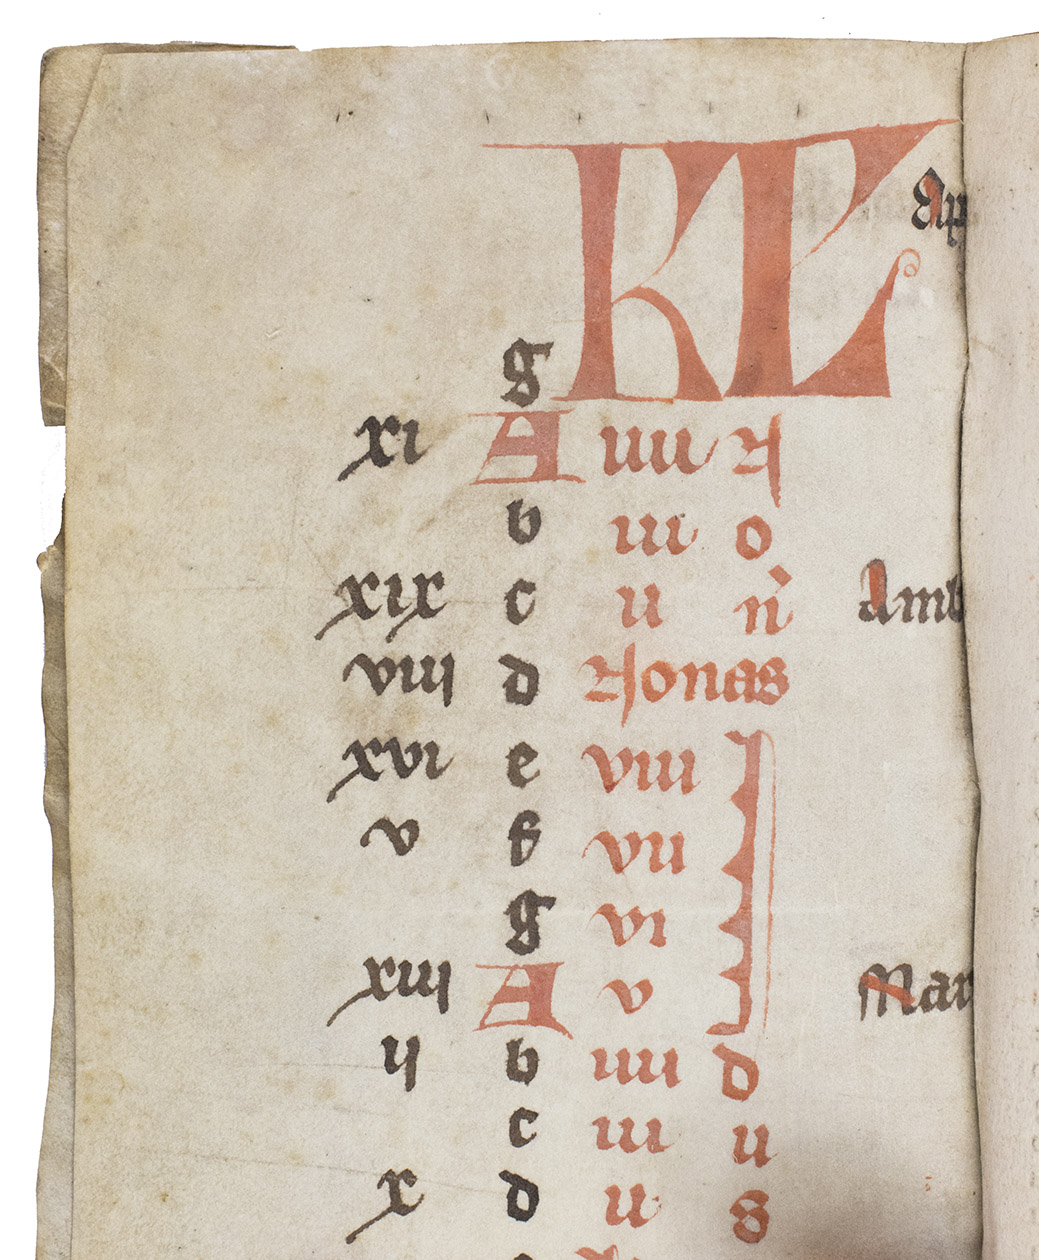 KL Ap
g
xi A iiii N
b iii o
xix c ii n Amb
viii d Nonas
xvi e viii I
v f vii
g vi
xiii A v Mar
ii b iiii d
c iii u
x d ii s